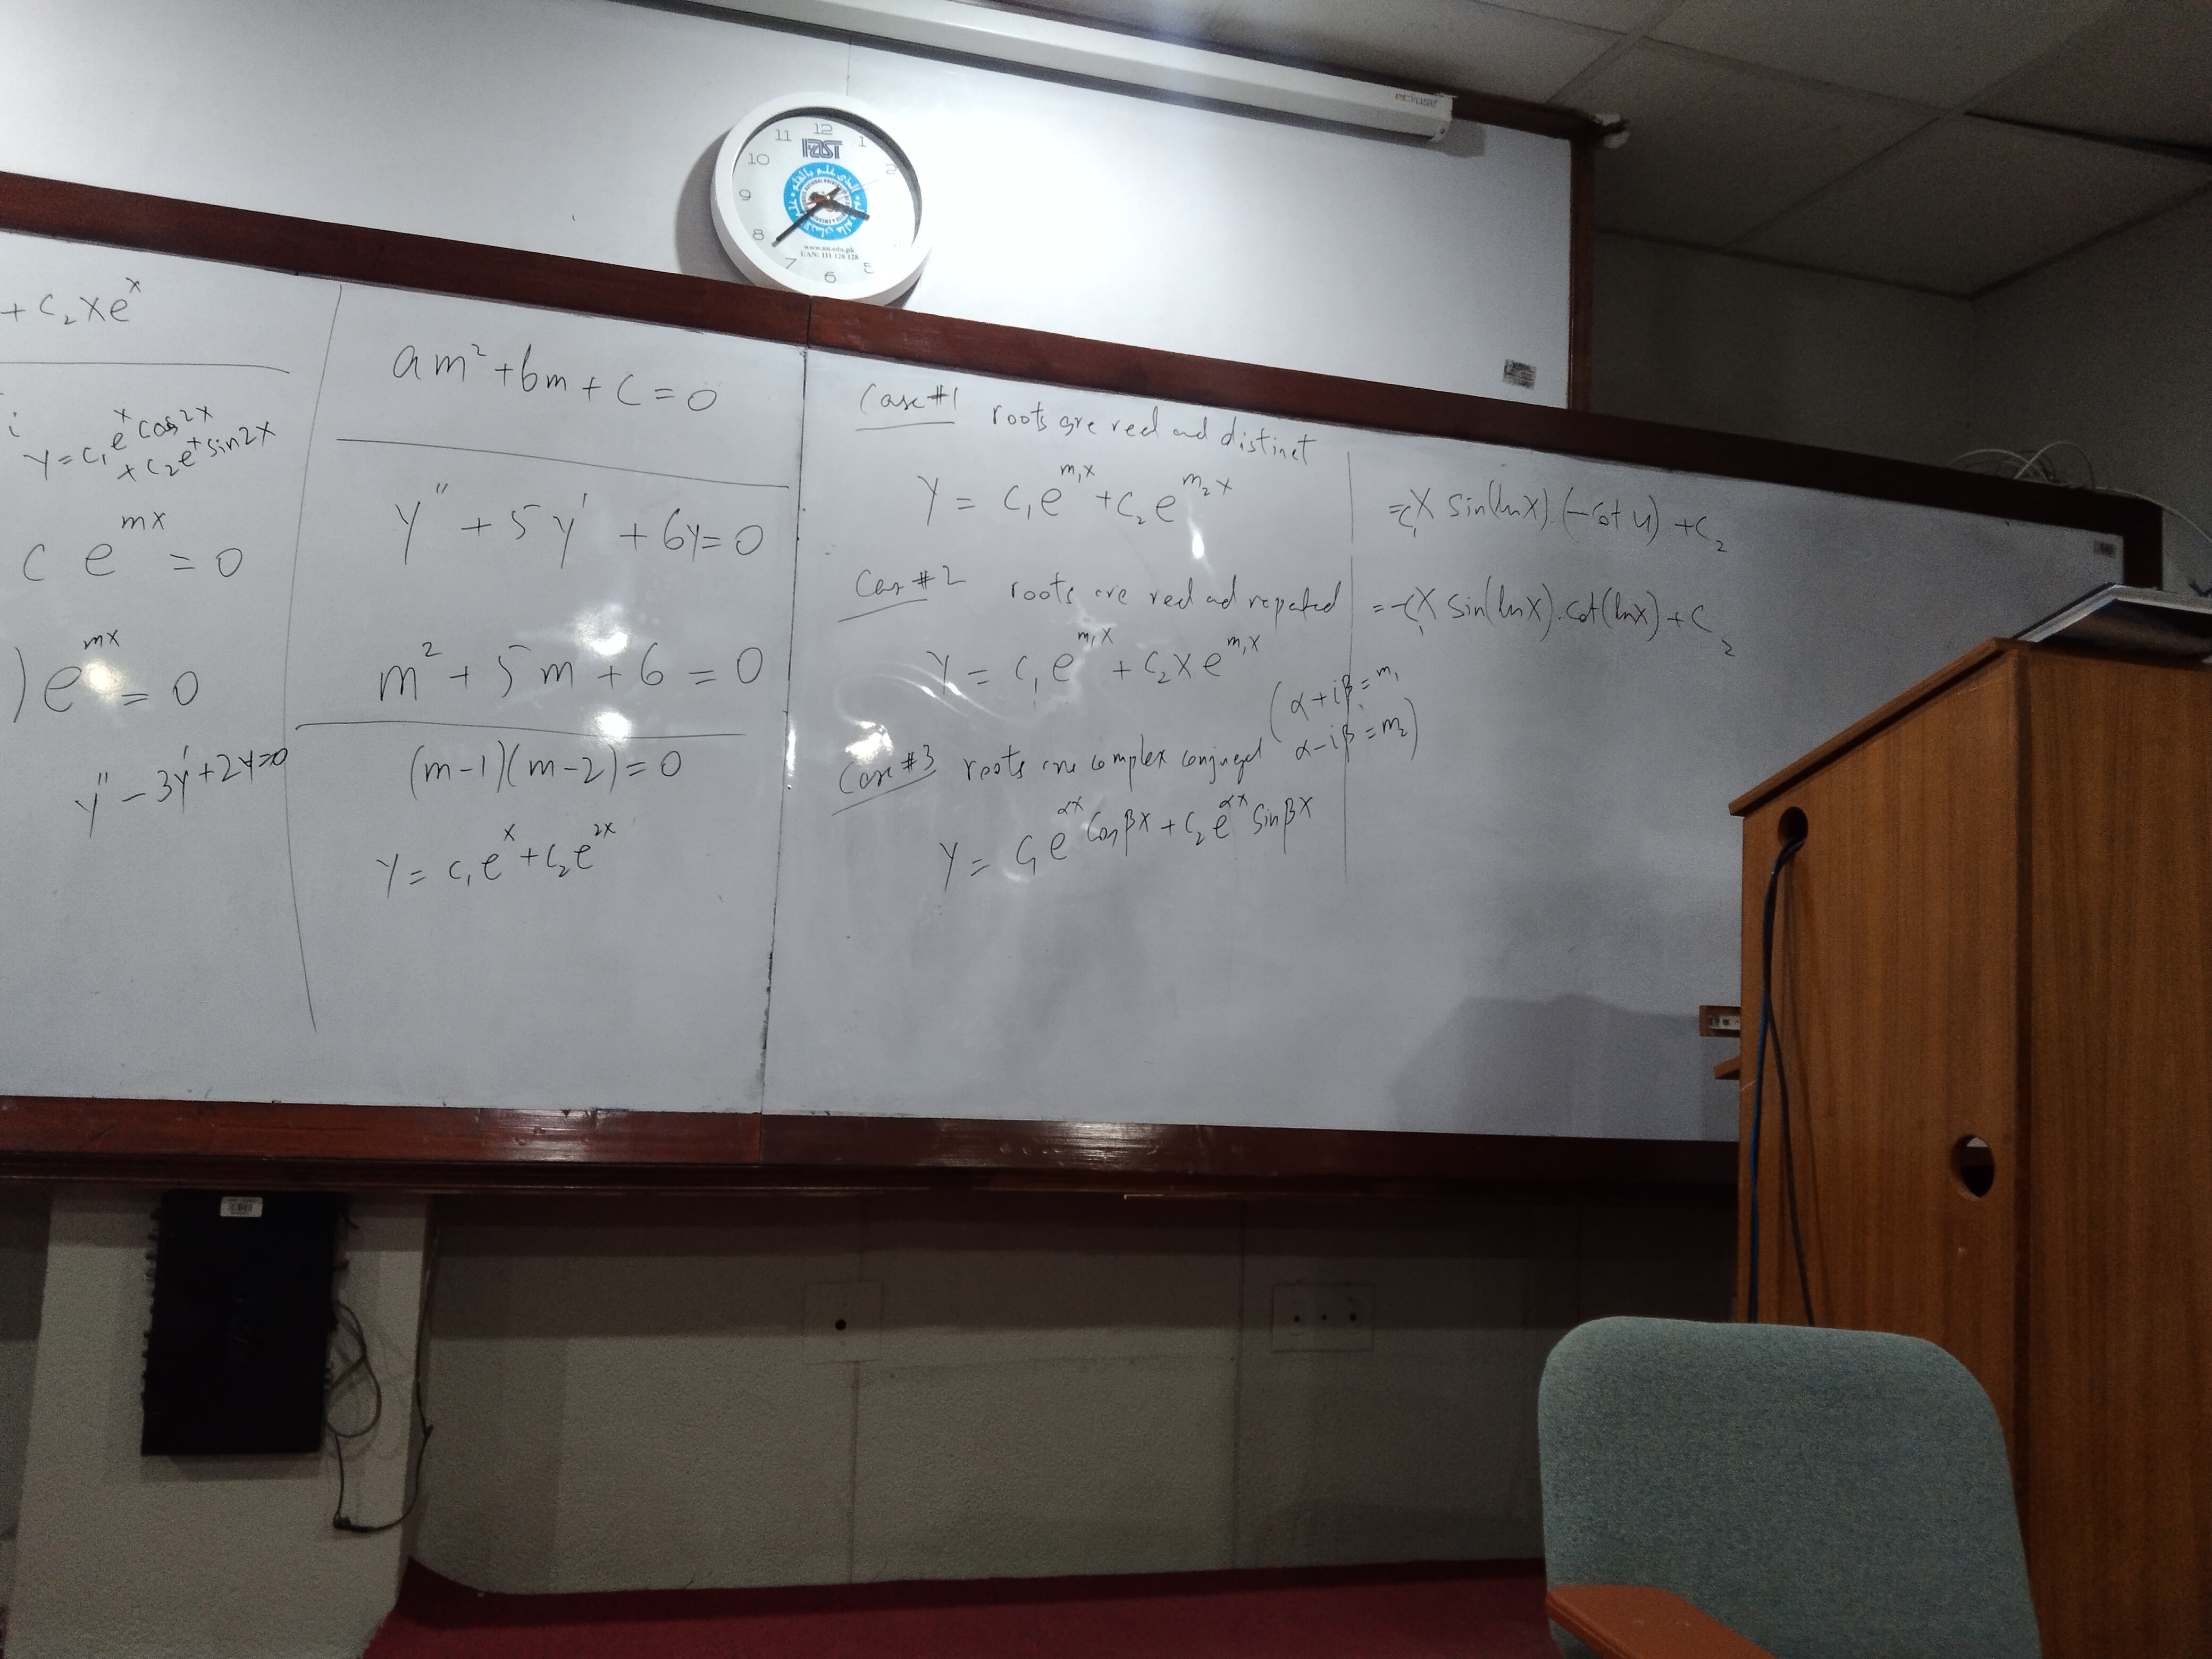 eclipse
12
11 1
10 2
FAST
9
8
www.nu.edu.pk
UAN: 111 128 128
7 5
6
+ c₂xeˣ
i
y = c₁eˣcos2x
+ c₂eˣsin2x
c e^{mx} = 0
)e^{mx} = 0
y'' - 3y' + 2y = 0
am² + bm + c = 0
y'' + 5y' + 6y = 0
m² + 5m + 6 = 0
(m-1)(m-2) = 0
y = c₁eˣ + c₂e^{2x}
Case #1 roots are real and distinct
y = c₁e^{m₁x} + c₂e^{m₂x}
Case #2 roots are real and repeated
y = c₁e^{m₁x} + c₂xe^{m₁x}
Case #3 roots are complex conjugal (α+iβ = m₁
α-iβ = m₂)
y = c₁e^{αx}cosβx + c₂e^{αx}sinβx
= c₁x sin(lnx).(-cot u) + c₂
= -c₁x sin(lnx).cot(lnx) + c₂